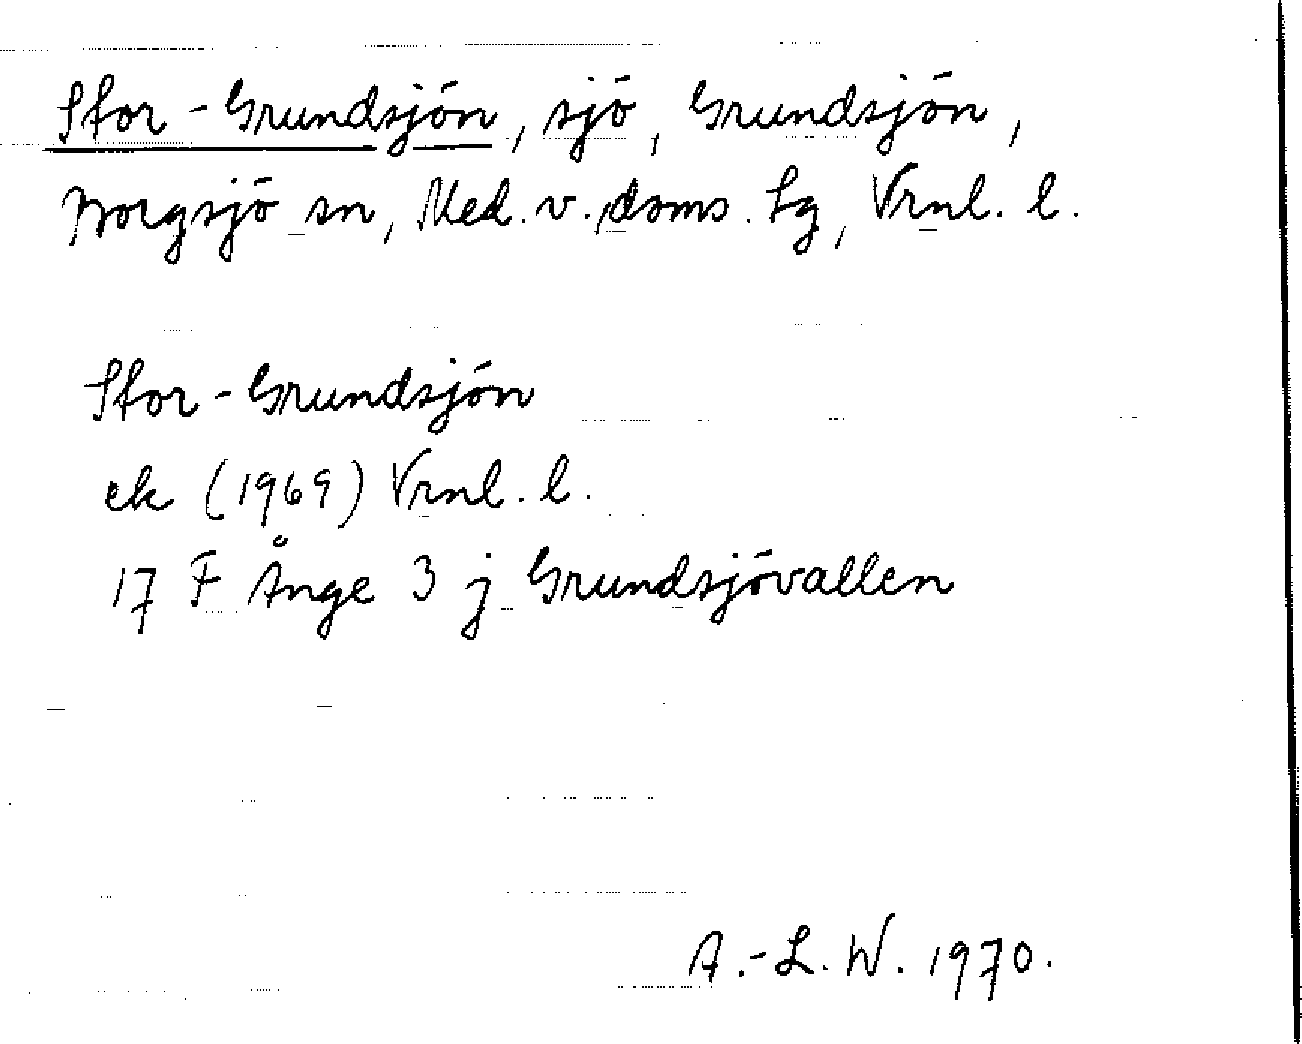 Stor-Grundsjön, sjö, Grundsjön,
Borgsjö sn, Med. v. doms. tg, Vrnl. l.
Stor-Grundsjön
ek (1969) Vrnl. l.
17 F Ånge 3 j Grundsjövallen
A.-L. W. 1970.